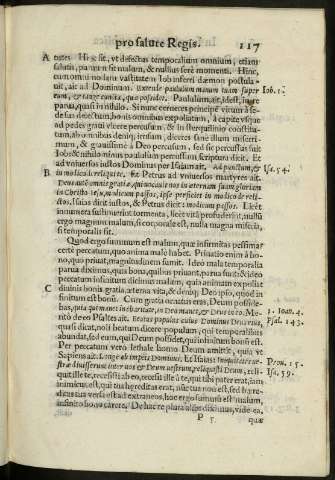 pro salute Regis. 117
A tates Hinc fit, vt defectas temporalium omnium, etiam
salutis, parum sit malum, & nullius ferè momenti. Hinc,
cum omni modam vastitatem Iob inferri dæmon postula-
uit, ait ad Dominum. Extende paululum manum tuam super Iob. 1.
eum, & tange cuncta, quæ possidet. Paululum, ait, idest, in re
parua, quasi in nihilo. Si nunc cerneres principem à se-
de sua detractum, bonis omnibus expoliatum, à capite vsque
ad pedes graui vlcere percussum, & in sterquilinio constitu-
tum, ab omnibus derideri, irrisum, diceres sane illum miserri-
mum, & grauissimè à Deo percussum, sed sic percussus fuit
Iob: & nihilominus paululum percussum Scriptura dicit. Et
ad vniuersos iustos Dominus per Isaiam ait. Ad punctum, & Isa. 54.
B in modico dereliqui te, Et Petrus ad vniuersos martyres ait.
Deus autem omnis gratiæ, qui vocauit nos in æternam suam gloriam
in Christo Iesu, modicum passos, ipse perficiet in modico dereli-
ctos, Isaias dicit iustos, & Petrus dicit: modicum passos. Licèt
innumera sustinuerint tormenta, licèt vita profuderint, nullū
ergo magnum malum, si corporis est, nulla magna miseria,
si temporalis sit.
Quod ergo summum est malum, quæ infirmitas pessima?
certè peccatum, quo anima malè habet. Priuatio enim à bo-
no, quo priuat, magnitudinem sumit. Ideo mala temporalia
parua diximus, quia bona, quibus priuant, parua sunt: & ideo
peccatum infinitum dicimus malum, quia animam expoliat
C diuinis bonis gratia, æterna vita, & denique Deo ipso, quod in
finitum est bonū. Cum gratia ornatus eras, Deum posside-
bas, quia qui manet in charitate, in Deo manet, & Deus in eo. Me- 1. Ioan. 4.
ritò de eo Psaltes ait. Beatus populus cuius Dominus Deus eius, Psal. 143.
quasi dicat, noli beatum dicere populum, qui temporalibus
abundat, sed eum, qui Deum possidet, qui infinitum bonū est.
Per peccatum verò lethale bonum Deum amittit, quia vt
Sapiens ait. Longe est ab impijs Dominus: Et Isaias: Iniquitates ve- Prou. 15.
stræ diuiserunt inter vos & Deum vestrum, reliquisti Deum, reli- Isa. 59.
quit ille te, recessisti ab eo, recessit ille à te, qui tibi pater erat, iam
inimicus est, qui tua hæreditas erat, nisi tua non est, sed aduersarius,
diuitiæ tuæ versæ est ad extraneos, hac ergo summū est malum,
infinito bono carere. De hac re plura aliàs diximus, videan,
P 5 quæ